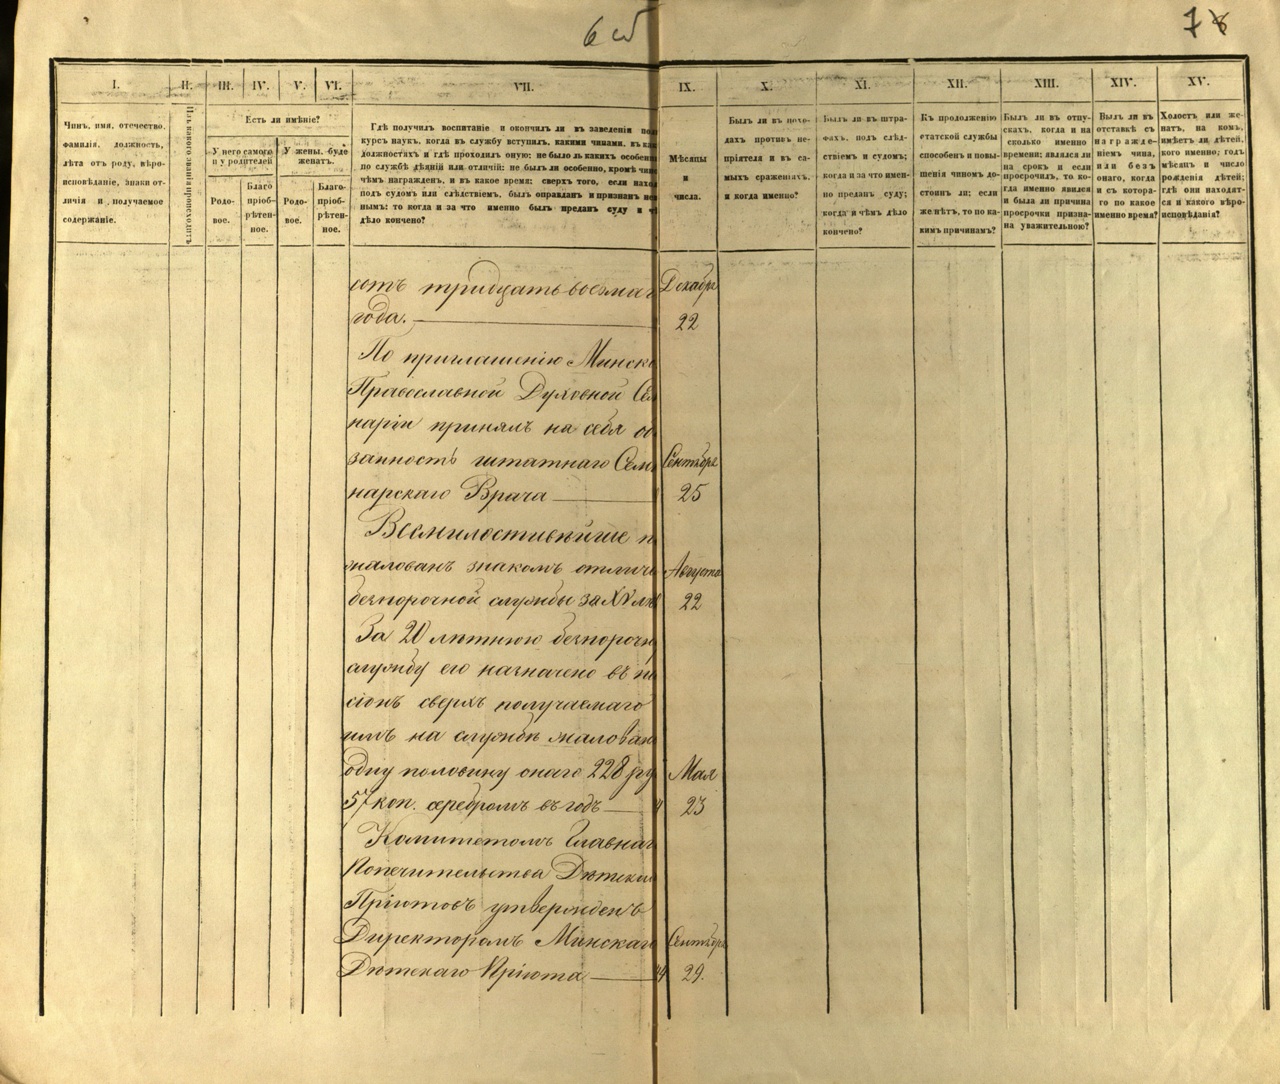 6 об
7 8
I. II. III. IV. V. VI. VII. IX. X. XI. XII. XIII. XIV. XV.
Чинъ, имя, отечество,
фамилія, должность,
лѣта отъ роду, вѣро-
исповѣданіе, знаки от-
личія и получаемое
содержаніе.
Изъ какого званія происходитъ
Есть ли имѣніе?
У него самого
и у родителей
У жены, буде
женатъ.
Родо-
вое.
Благо
пріоб-
рѣтен-
ное.
Родо-
вое.
Благо-
пріоб-
рѣтен-
ное.
Гдѣ получилъ воспитаніе и окончилъ ли въ заведеніи пол
курсъ наукъ, когда въ службу вступилъ, какими чинами, въ как
должностяхъ и гдѣ проходилъ оную; не было ль какихъ особенн
по службѣ дѣяній или отличій; не былъ ли особенно, кромѣ чино
чѣмъ награжденъ, и въ какое время; сверхъ того, если наход
подъ судомъ или слѣдствіемъ, былъ оправданъ и признанъ не
нымъ; то когда и за что именно былъ преданъ суду и ч
дѣло кончено?
Мѣсяцы
и
числа.
Былъ ли въ похо-
дахъ противъ не-
пріятеля и въ са-
мыхъ сраженіяхъ,
и когда именно?
Былъ ли въ штра-
фахъ, подъ слѣд-
ствіемъ и судомъ;
когда и за что имен-
но преданъ суду;
когда и чѣмъ дѣло
кончено?
Къ продолженію
статской службы
способенъ и повы-
шенія чиномъ до-
стоинъ ли; если
же нѣтъ, то по ка-
кимъ причинамъ?
Былъ ли въ отпу-
скахъ, когда и на
сколько именно
времени; являлся ли
на срокъ и если
просрочилъ, то ко-
гда именно явился
и была ли причина
просрочки призна-
на уважительною?
Былъ ли въ
отставкѣ съ
награжде-
ніемъ чина,
или безъ
онаго, когда
и съ котора-
го по какое
именно время?
Холостъ или же-
натъ, на комъ,
имѣетъ ли дѣтей,
кого именно; годъ
мѣсяцъ и число
рожденія дѣтей;
гдѣ они находят-
ся и какого вѣро-
исповѣданія?
сотъ тридцать восмаг Декабря
года. 22
По приглашенію Минско
Православной Духовной Сем
наріи принялъ на себя об
занность штатнаго Семи Сентября
нарскаго Врача 25
Всемилостивѣйше п
жалованъ знакомъ отличі Августа
безпорочной службы за XV лѣ 22
За 20 лѣтнюю безпорочн
службу его назначено въ пе
сіонъ сверхъ получаемаго
имъ на службѣ жалован
одну половину онаго 228 ру Мая
57 коп. серебромъ въ годъ 23
Комитетомъ Главнаг
Попечительства Дѣтских
Пріютовъ утвержденъ
Директоромъ Минскаго Сентября
Дѣтскаго Пріюта 29.